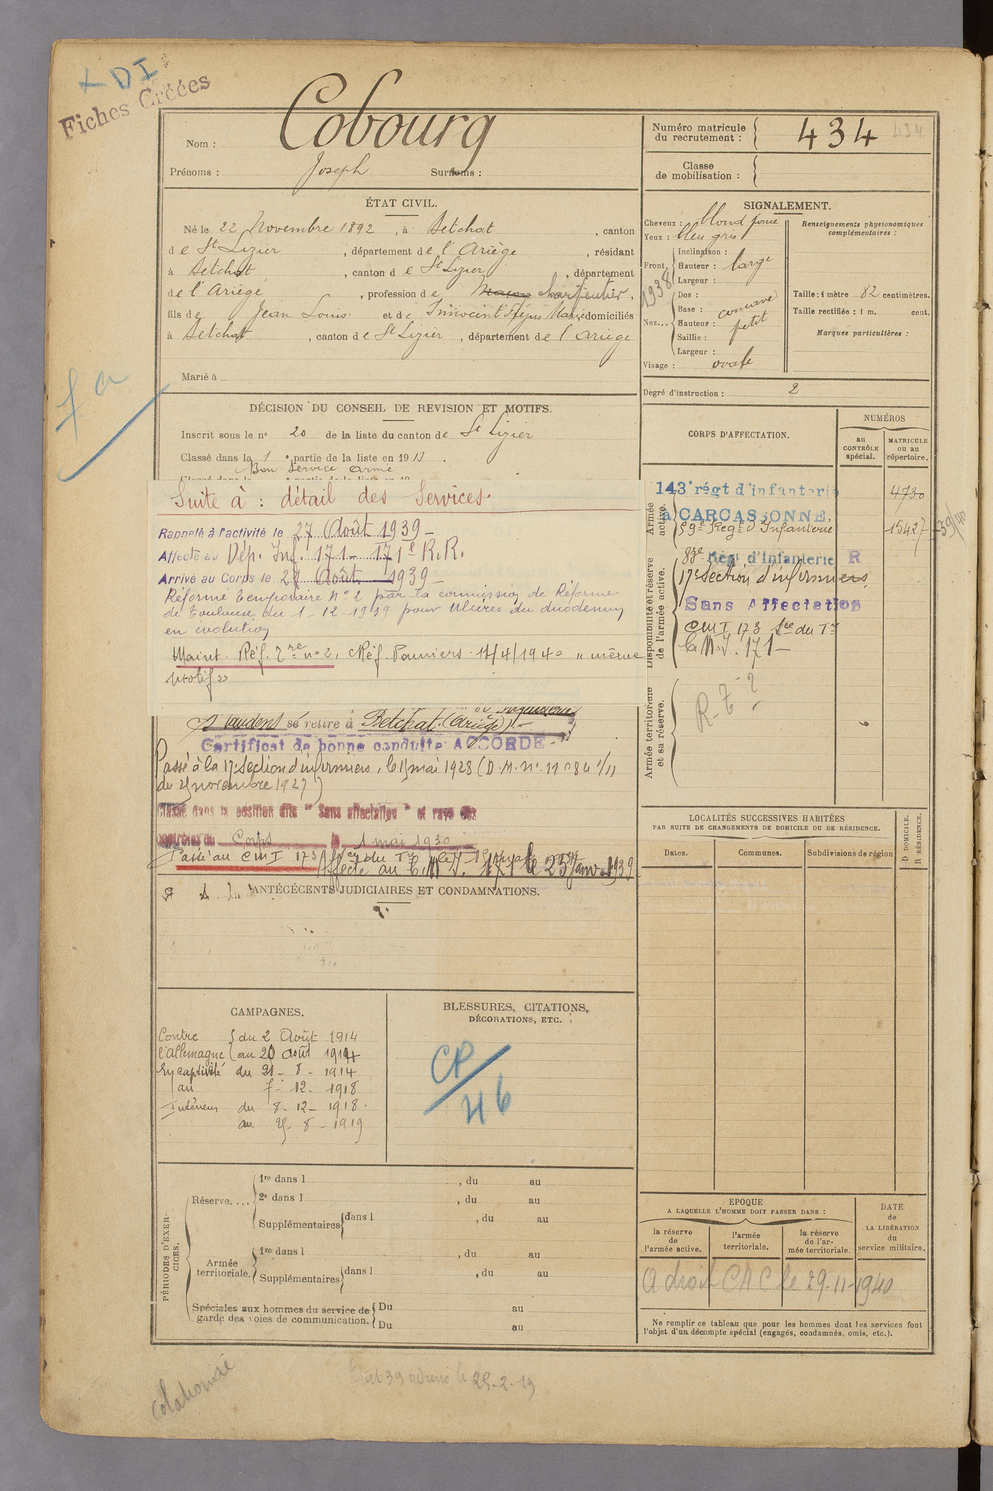 X DI
Fiches Créées
Nom : Cobourg
Prénoms : Joseph Surnoms :
Numéro matricule du recrutement : 434 434
Classe de mobilisation :
ÉTAT CIVIL.
Né le 22 Novembre 1892, à Betchat, canton
de St Lizier, département de l'Ariège, résidant
à Betchat, canton de St Lizier, département
de l'Ariège, profession de charpentier,
fils de Jean Louis et de domiciliés
à Betchat, canton de St Lizier, département de l'Ariège
Marié à
SIGNALEMENT.
Cheveux : blond foncé
Yeux : bleu gris
Front
Inclinaison :
Hauteur : large
Largeur :
1938
Nez
Dos :
Base : concave
Hauteur : petit
Saillie :
Largeur :
Visage : ovale
Renseignements physionomiques complémentaires :
Taille : 1 mètre 82 centimètres.
Taille rectifiée : 1 m. cent.
Marques particulières :
Degré d'instruction : 2
DÉCISION DU CONSEIL DE REVISION ET MOTIFS.
Inscrit sous le n° 20 de la liste du canton de St Lizier
Classé dans la 1e partie de la liste en 1913
Bon Service armé
Suite à : détail des Services.
Rappelé à l'activité le 27 Août 1939
Affecté au Dép. Inf. 171 - 171e R.R.
Arrivé au Corps le 27 Août 1939
Réformé temporaire N° 2 par la commission de Réforme
de Toulouse du 1-12-1939 pour ulcères du duodénum
en évolution
Maint. Réf. Tre n° 2, C Réf. Pamiers 11/4/1940 "même
motif"
se retire à Betchat (Ariège)
Certificat de bonne conduite ACCORDÉ
Passé à la 17e Section d'infirmiers, le 1er mai 1928 (D.M. n° 11084 1/11
du novembre 1927)
Classé dans la position dite "Sans affectation" et rayé des
contrôles du Corps le 1 mai 1930
Passé au CMI 173
Affecté au C.M.I. 171 le 25 Janv. 1939
ANTÉCÉDENTS JUDICIAIRES ET CONDAMNATIONS.
CORPS D'AFFECTATION.
NUMÉROS
au CONTRÔLE spécial.
MATRICULE ou au répertoire.
Armée active.
143e régt d'infanterie 4730
à CARCASSONNE.
59e Regt d'Infanterie 15427
Disponibilité et réserve de l'armée active.
83e Régt d'infanterie R
17e Section d'infirmiers
Sans Affectation
CMI 173
C.M.I. 171
Armée territoriale et sa réserve.
LOCALITÉS SUCCESSIVES HABITÉES
PAR SUITE DE CHANGEMENTS DE DOMICILE OU DE RÉSIDENCE.
Dates.
Communes.
Subdivisions de région
D. DOMICILE.
R. RÉSIDENCE.
CAMPAGNES.
Contre du 2 Août 1914
l'Allemagne au 20 août 1914
En captivité du 21-8-1914
au 7-12-1918
Intérieur du 8-12-1918
au 25-8-1919
BLESSURES, CITATIONS,
DÉCORATIONS, ETC.
CP/46
PÉRIODES D'EXERCICES.
Réserve....
1re dans l , du au
2e dans l , du au
Supplémentaires dans l , du au
Armée territoriale.
1re dans l , du au
Supplémentaires dans l , du au
Spéciales aux hommes du service de garde des voies de communication.
Du au
Du au
EPOQUE
A LAQUELLE L'HOMME DOIT PASSER DANS :
la réserve de l'armée active.
l'armée territoriale.
la réserve de l'armée territoriale
DATE de LA LIBÉRATION du service militaire.
a droit CAC le 29-11-1940
Ne remplir ce tableau que pour les hommes dont les services font
l'objet d'un décompte spécial (engagés, condamnés, omis, etc.).